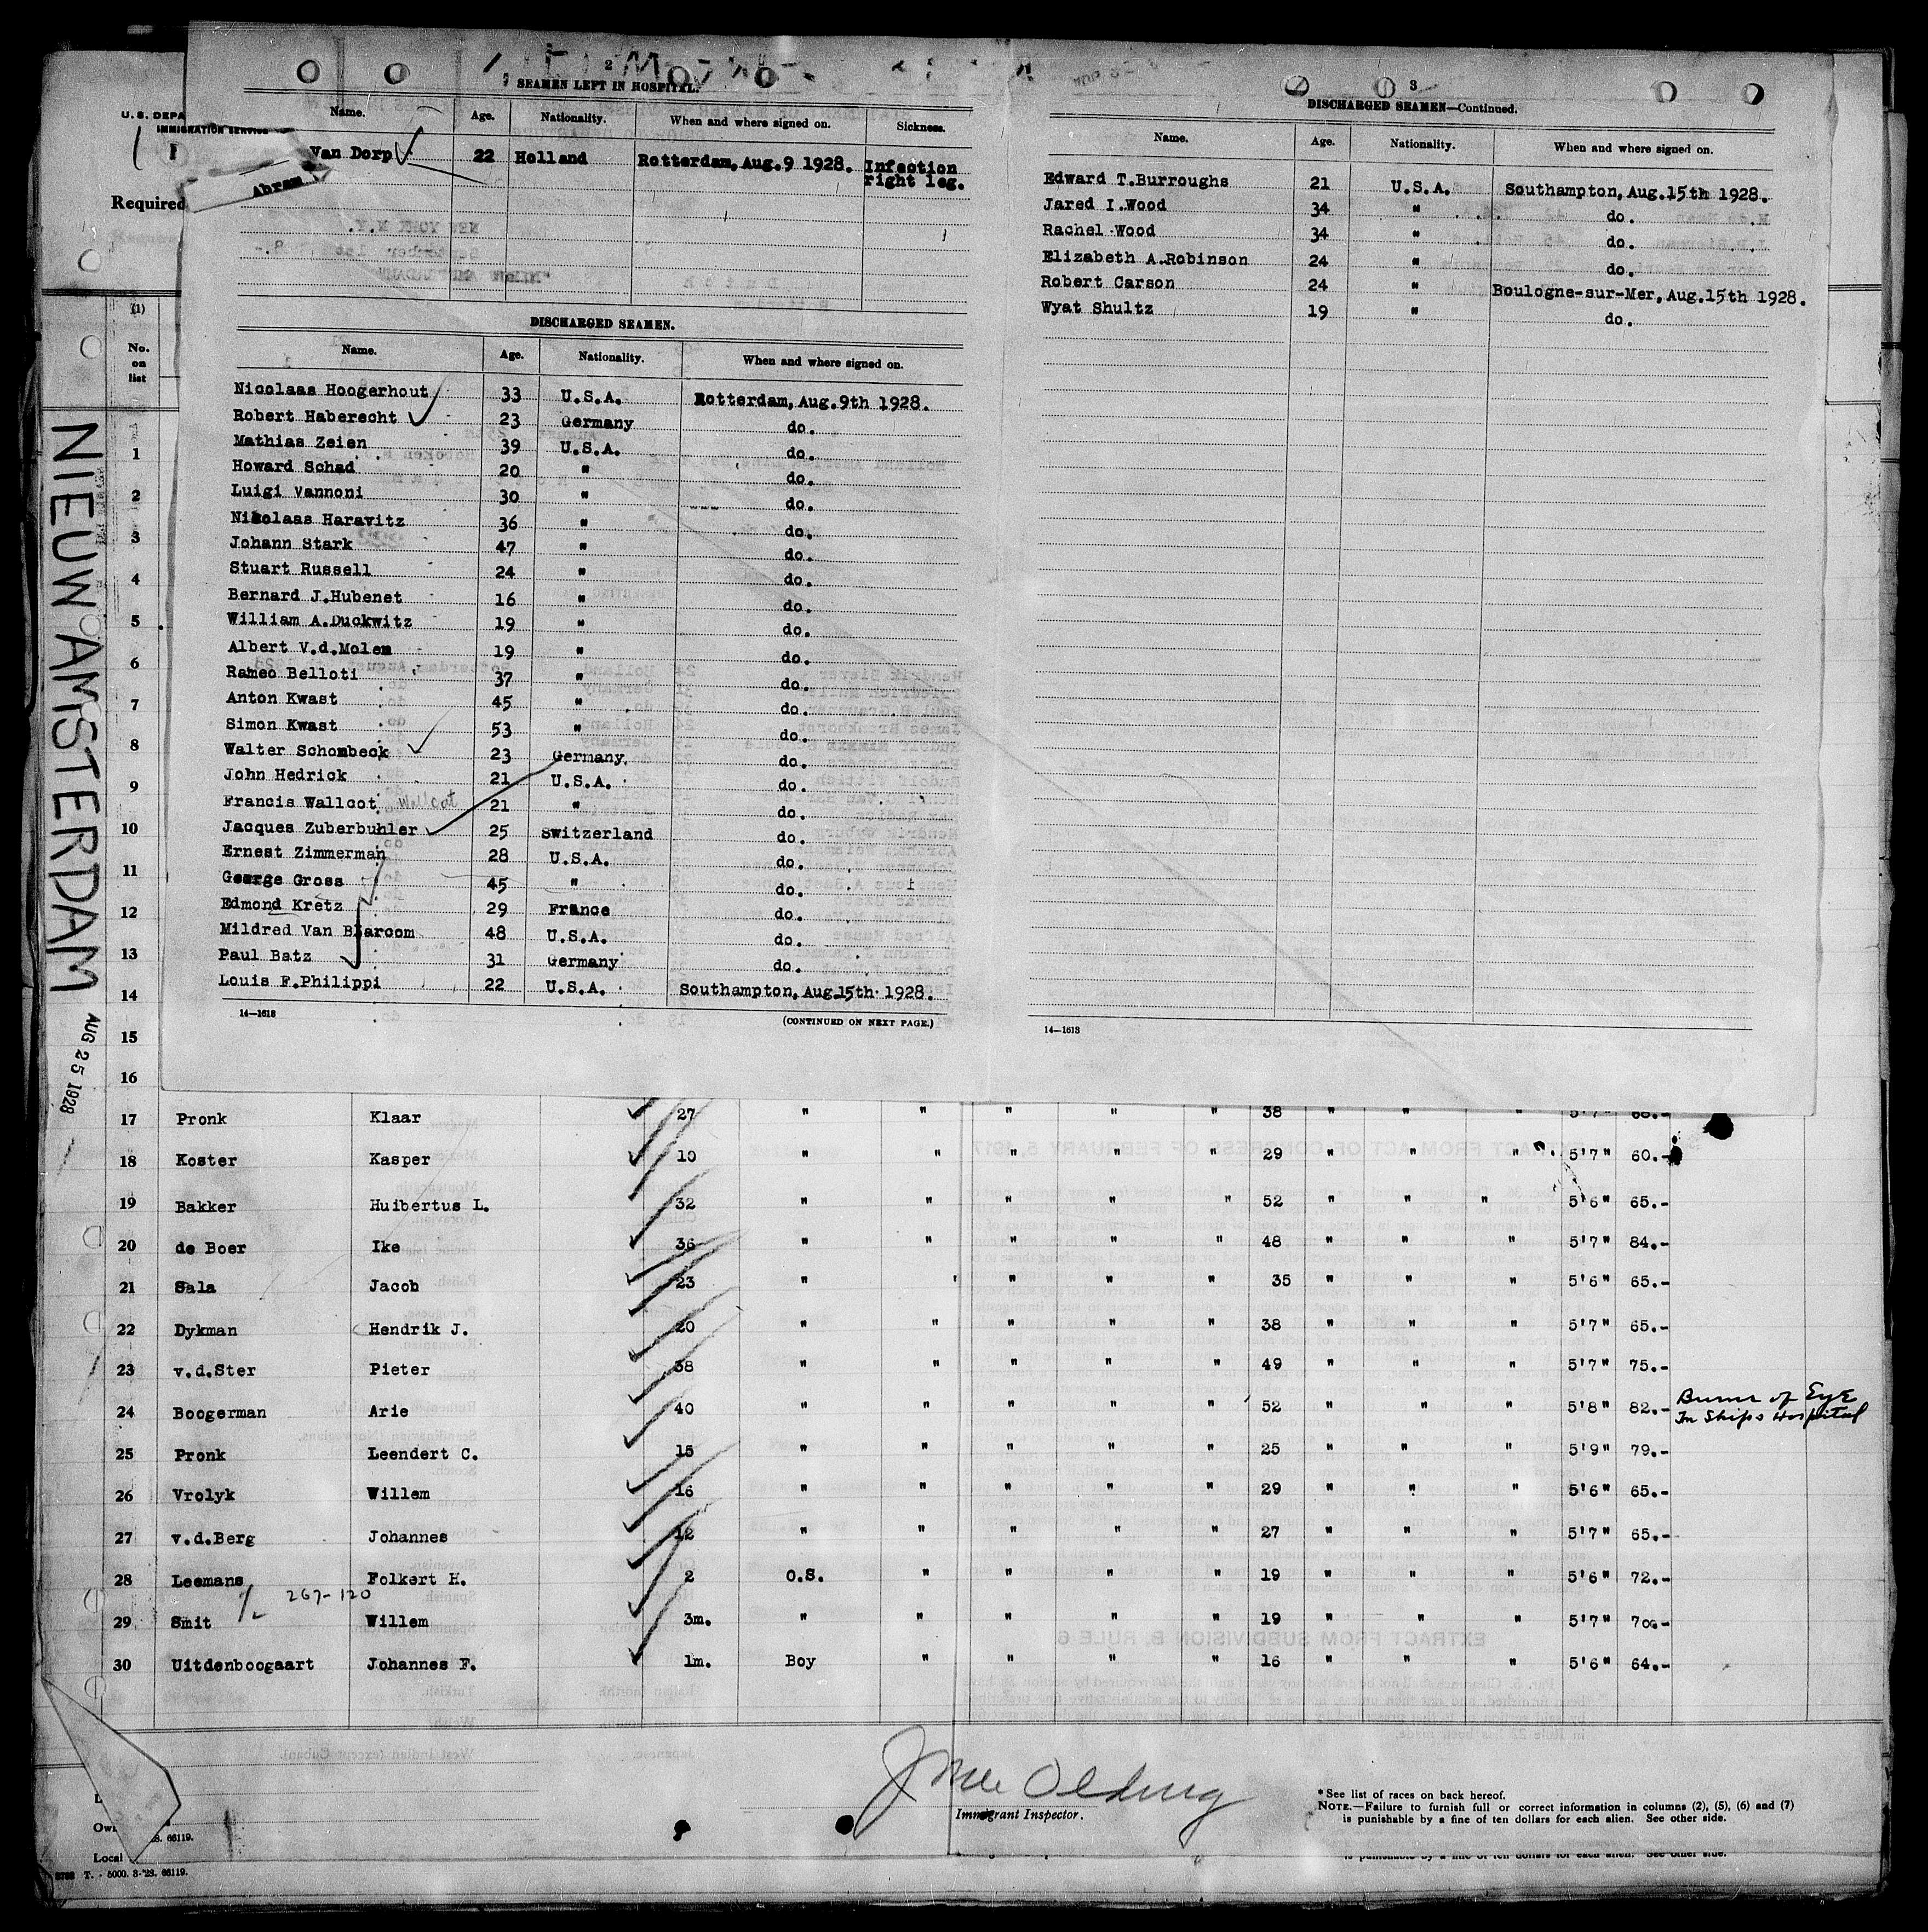 2
SEAMEN LEFT IN HOSPITAL.
Name. Age. Nationality. When and where signed on. Sickness.
Van Dorp 22 Holland Rotterdam, Aug.9 1928. Infection right leg.
Abram
DISCHARGED SEAMEN.
Name. Age. Nationality. When and where signed on.
Nicolaas Hoogerhout 33 U.S.A. Rotterdam, Aug.9th 1928.
Robert Haberecht 23 Germany do.
Mathias Zeien 39 U.S.A. do.
Howard Schad 20 " do.
Luigi Vannoni 30 " do.
Nikolaas Haravitz 36 " do.
Johann Stark 47 " do.
Stuart Russell 24 " do.
Bernard J.Hubenet 16 " do.
William A.Duckwitz 19 " do.
Albert V.d.Molen 19 " do.
Rameo Belloti 37 " do.
Anton Kwast 45 " do.
Simon Kwast 53 " do.
Walter Schombeck 23 Germany. do.
John Hedrick 21 U.S.A. do.
Francis Wallcot Wellcot 21 " do.
Jacques Zuberbuhler 25 Switzerland do.
Ernest Zimmerman 28 U.S.A. do.
George Gross 45 " do.
Edmond Kretz 29 France do.
Mildred Van Blarcom 48 U.S.A. do.
Paul Batz 31 Germany do.
Louis F.Philippi 22 U.S.A. Southampton, Aug.15th 1928.
14—1613 (CONTINUED ON NEXT PAGE.)
3
DISCHARGED SEAMEN—Continued.
Name. Age. Nationality. When and where signed on.
Edward T.Burroughs 21 U.S.A. Southampton, Aug.15th 1928.
Jared I.Wood 34 " do.
Rachel Wood 34 " do.
Elizabeth A.Robinson 24 " do.
Robert Carson 24 " Boulogne-sur-Mer, Aug.15th 1928.
Wyat Shultz 19 " do.
14—1613
U. S. DEPA
IMMIGRATION SERVICE
Required
(1)
No.
on
list
NIEUW AMSTERDAM AUG 25 1928
1
2
3
4
5
6
7
8
9
10
11
12
13
14
15
16
17 Pronk Klaar 27 " " " " " 38 " " " 5'7" 68.-
18 Koster Kasper 10 " " " " " 29 " " " 5'7" 60.-
19 Bakker Huibertus L. 32 " " " " " 52 " " " 5'6" 65.-
20 de Boer Ike 36 " " " " " 48 " " " 5'7" 84.-
21 Sala Jacob 23 " " " " " 35 " " " 5'6" 65.-
22 Dykman Hendrik J. 20 " " " " " 38 " " " 5'7" 65.-
23 v.d.Ster Pieter 38 " " " " " 49 " " " 5'7" 75.-
24 Boogerman Arie 40 " " " " " 52 " " " 5'8" 82.- Burns of Eye
In Ships Hospital
25 Pronk Leendert C. 15 " " " " " 25 " " " 5'9" 79.-
26 Vrolyk Willem 16 " " " " " 29 " " " 5'6" 65.-
27 v.d.Berg Johannes 12 " " " " " 27 " " " 5'7" 65.-
28 Leemans Folkert H. 2 O.S. " " " " 19 " " " 5'6" 72.-
267-120
29 Smit Willem 3m. " " " " " 19 " " " 5'7" 70.-
30 Uitdenboogaart Johannes F. 1m. Boy " " " " 16 " " " 5'6" 64.-
Immigrant Inspector.
*See list of races on back hereof.
NOTE.—Failure to furnish full or correct information in columns (2), (5), (6) and (7)
is punishable by a fine of ten dollars for each alien. See other side.
Local
T. - 5000. 3-'28. 66119.